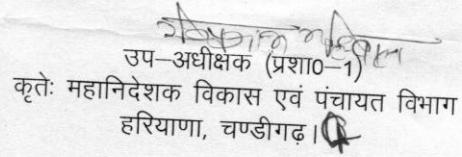 उप–अधीक्षक (प्रशा0–1)
कृतेः महानिदेशक विकास एवं पंचायत विभाग
हरियाणा, चण्डीगढ़।